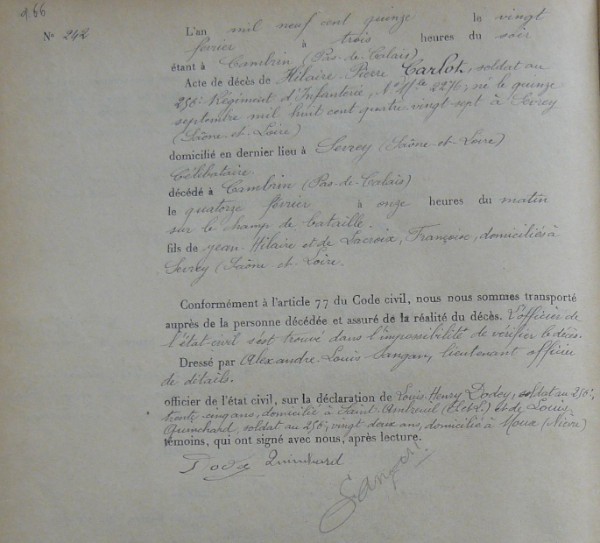 9.66
N° 242
L'an mil neuf cent quinze le vingt
février à trois heures du soir
étant à Cambrin (Pas-de-Calais)
Acte de décès de Hilaire Pierre Carlot, soldat au
256e Régiment d'Infanterie, N° Mle 2276, né le quinze
septembre mil huit cent quatre vingt sept à Sevrey
(Saône-et-Loire)
domicilié en dernier lieu à Sevrey (Saône-et-Loire)
Célibataire
décédé à Cambrin (Pas-de-Calais)
le quatorze février à onze heures du matin
sur le champ de bataille.
fils de Jean Hilaire et de Lacroix, Françoise, domiciliés à
Sevrey (Saône-et-Loire.
Conformément à l'article 77 du Code civil, nous nous sommes transporté
auprès de la personne décédée et assuré de la réalité du décès. L'officier de
l'état-civil s'est trouvé dans l'impossibilité de vérifier le décès.
Dressé par Alexandre Louis lieutenant officier
de détails.
officier de l'état civil, sur la déclaration de Louis Henry Dodey, soldat au 256e,
trente cinq ans, domicilié à Saint (S.et.L.) et de Louis
Quinchard, soldat au 256e, vingt deux ans, domicilié à Moux (Nièvre)
témoins, qui ont signé avec nous, après lecture.
Dodey Quinchard